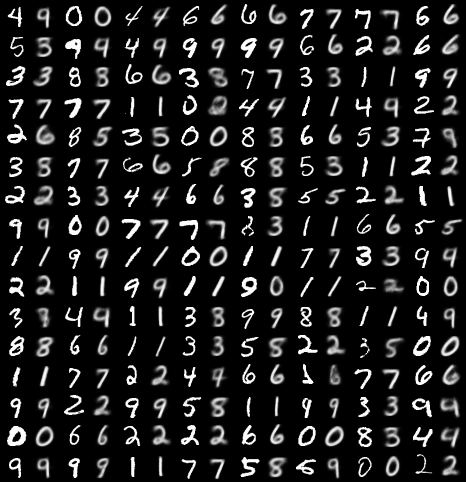 4 9 0 0 4 4 6 6 6 6 7 7 7 7 6 6
5 3 9 9 4 9 9 9 9 9 6 6 2 2 6 6
3 3 8 8 6 6 3 8 7 7 3 3 1 1 9 9
7 7 7 7 1 1 0 2 4 4 1 1 4 9 2 2
2 6 8 5 3 5 0 0 8 3 6 6 5 3 7 9
3 8 7 7 6 6 5 8 8 8 5 3 1 1 2 2
2 2 3 3 4 4 6 6 3 8 5 5 2 2 1 1
9 9 0 0 7 7 7 7 3 3 1 1 6 6 5 5
1 1 9 9 1 1 0 0 1 1 7 7 3 3 9 9
2 2 1 1 9 9 1 1 9 0 1 1 2 2 0 0
3 3 4 4 1 1 3 8 9 9 8 8 1 1 4 9
8 8 6 6 1 1 3 3 5 8 2 2 3 5 0 0
1 1 7 7 2 2 4 4 6 6 1 6 7 7 6 6
9 9 2 2 9 9 5 8 1 1 9 9 3 3 9 9
0 0 6 6 2 2 2 2 6 6 0 0 8 3 4 4
9 9 9 9 1 1 7 7 5 8 5 9 0 0 2 2